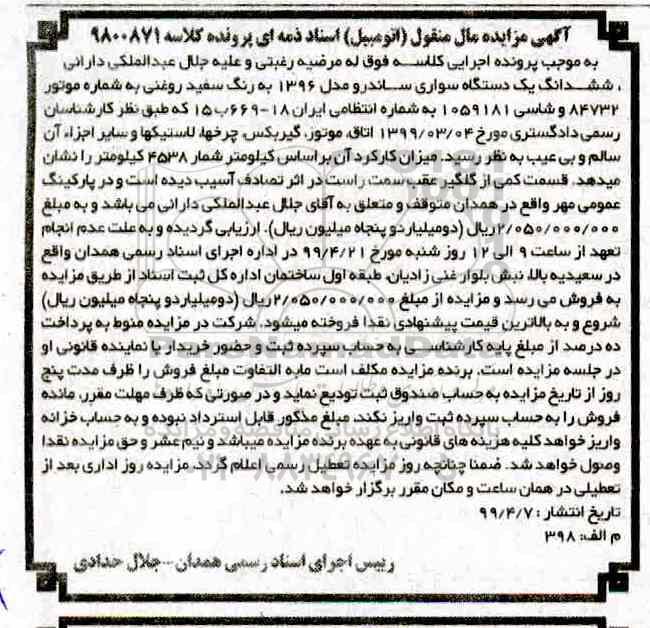 آگهی مزایده مال منقول (اتومبیل) اسناد ذمه ای پرونده کلاسه ۹۸۰۰۸۷۱
به موجب پرونده اجرایی کلاسه فوق له مرضیه رغبتی و علیه جلال عبدالملکی دارائی
، ششدانگ یک دستگاه سواری ساندرو مدل ۱۳۹۶ به رنگ سفید روغنی به شماره موتور
۸۴۷۳۲ و شاسی ۱۰۵۹۱۸۱ به شماره انتظامی ایران ۱۸-۶۶۹ب۱۵ که طبق نظر کارشناسان
رسمی دادگستری مورخ ۱۳۹۹/۰۳/۰۴ اتاق، موتور، گیربکس، چرخها، لاستیکها و سایر اجزاء آن
سالم و بی عیب به نظر رسید. میزان کارکرد آن براساس کیلومتر شمار ۴۵۳۸ کیلومتر را نشان
میدهد. قسمت کمی از گلگیر عقب سمت راست در اثر تصادف آسیب دیده است و در پارکینگ
عمومی مهر واقع در همدان متوقف و متعلق به آقای جلال عبدالملکی دارائی می باشد و به مبلغ
۲/۰۵۰/۰۰۰/۰۰۰ ریال (دومیلیارد و پنجاه میلیون ریال). ارزیابی گردیده و به علت عدم انجام
تعهد از ساعت ۹ الی ۱۲ روز شنبه مورخ ۹۹/۴/۲۱ در اداره اجرای اسناد رسمی همدان واقع
در سعیدیه بالا، نبش بلوار غنی زادیان، طبقه اول ساختمان اداره کل ثبت اسناد از طریق مزایده
به فروش می رسد و مزایده از مبلغ ۲/۰۵۰/۰۰۰/۰۰۰ ریال (دومیلیارد و پنجاه میلیون ریال)
شروع و به بالاترین قیمت پیشنهادی نقدا فروخته میشود، شرکت در مزایده منوط به پرداخت
ده درصد از مبلغ پایه کارشناسی به حساب سپرده ثبت و حضور خریدار یا نماینده قانونی او
در جلسه مزایده است. برنده مزایده مکلف است مابه التفاوت مبلغ فروش را ظرف مدت پنج
روز از تاریخ مزایده به حساب صندوق ثبت تودیع نماید و در صورتی که ظرف مهلت مقرر، مانده
فروش را به حساب سپرده ثبت واریز نکند، مبلغ مذکور قابل استرداد نبوده و به حساب خزانه
واریز خواهد کلیه هزینه های قانونی به عهده برنده مزایده میباشد و نیم عشر و حق مزایده نقدا
وصول خواهد شد. ضمنا چنانچه روز مزایده تعطیل رسمی اعلام گردد، مزایده روز اداری بعد از
تعطیلی در همان ساعت و مکان مقرر برگزار خواهد شد.
تاریخ انتشار: ۹۹/۴/۷
م الف: ۳۹۸
رییس اجرای اسناد رسمی همدان-جلال حدادی